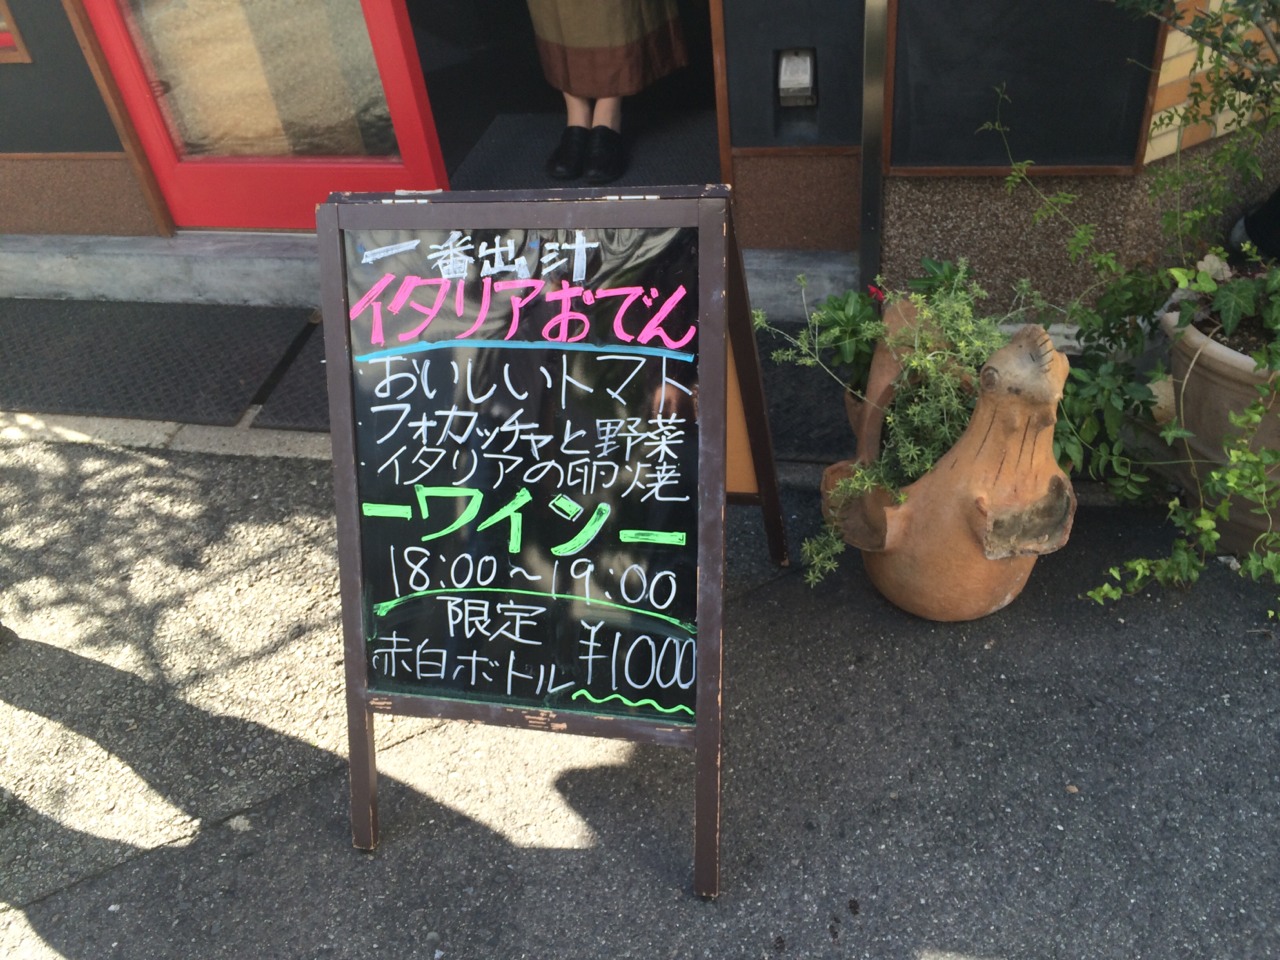 一番出汁
イタリアおでん
・おいしいトマト
フォカッチャと野菜
・イタリアの卵焼
ーワインー
18:00〜19:00
限定
赤白ボトル ¥1000